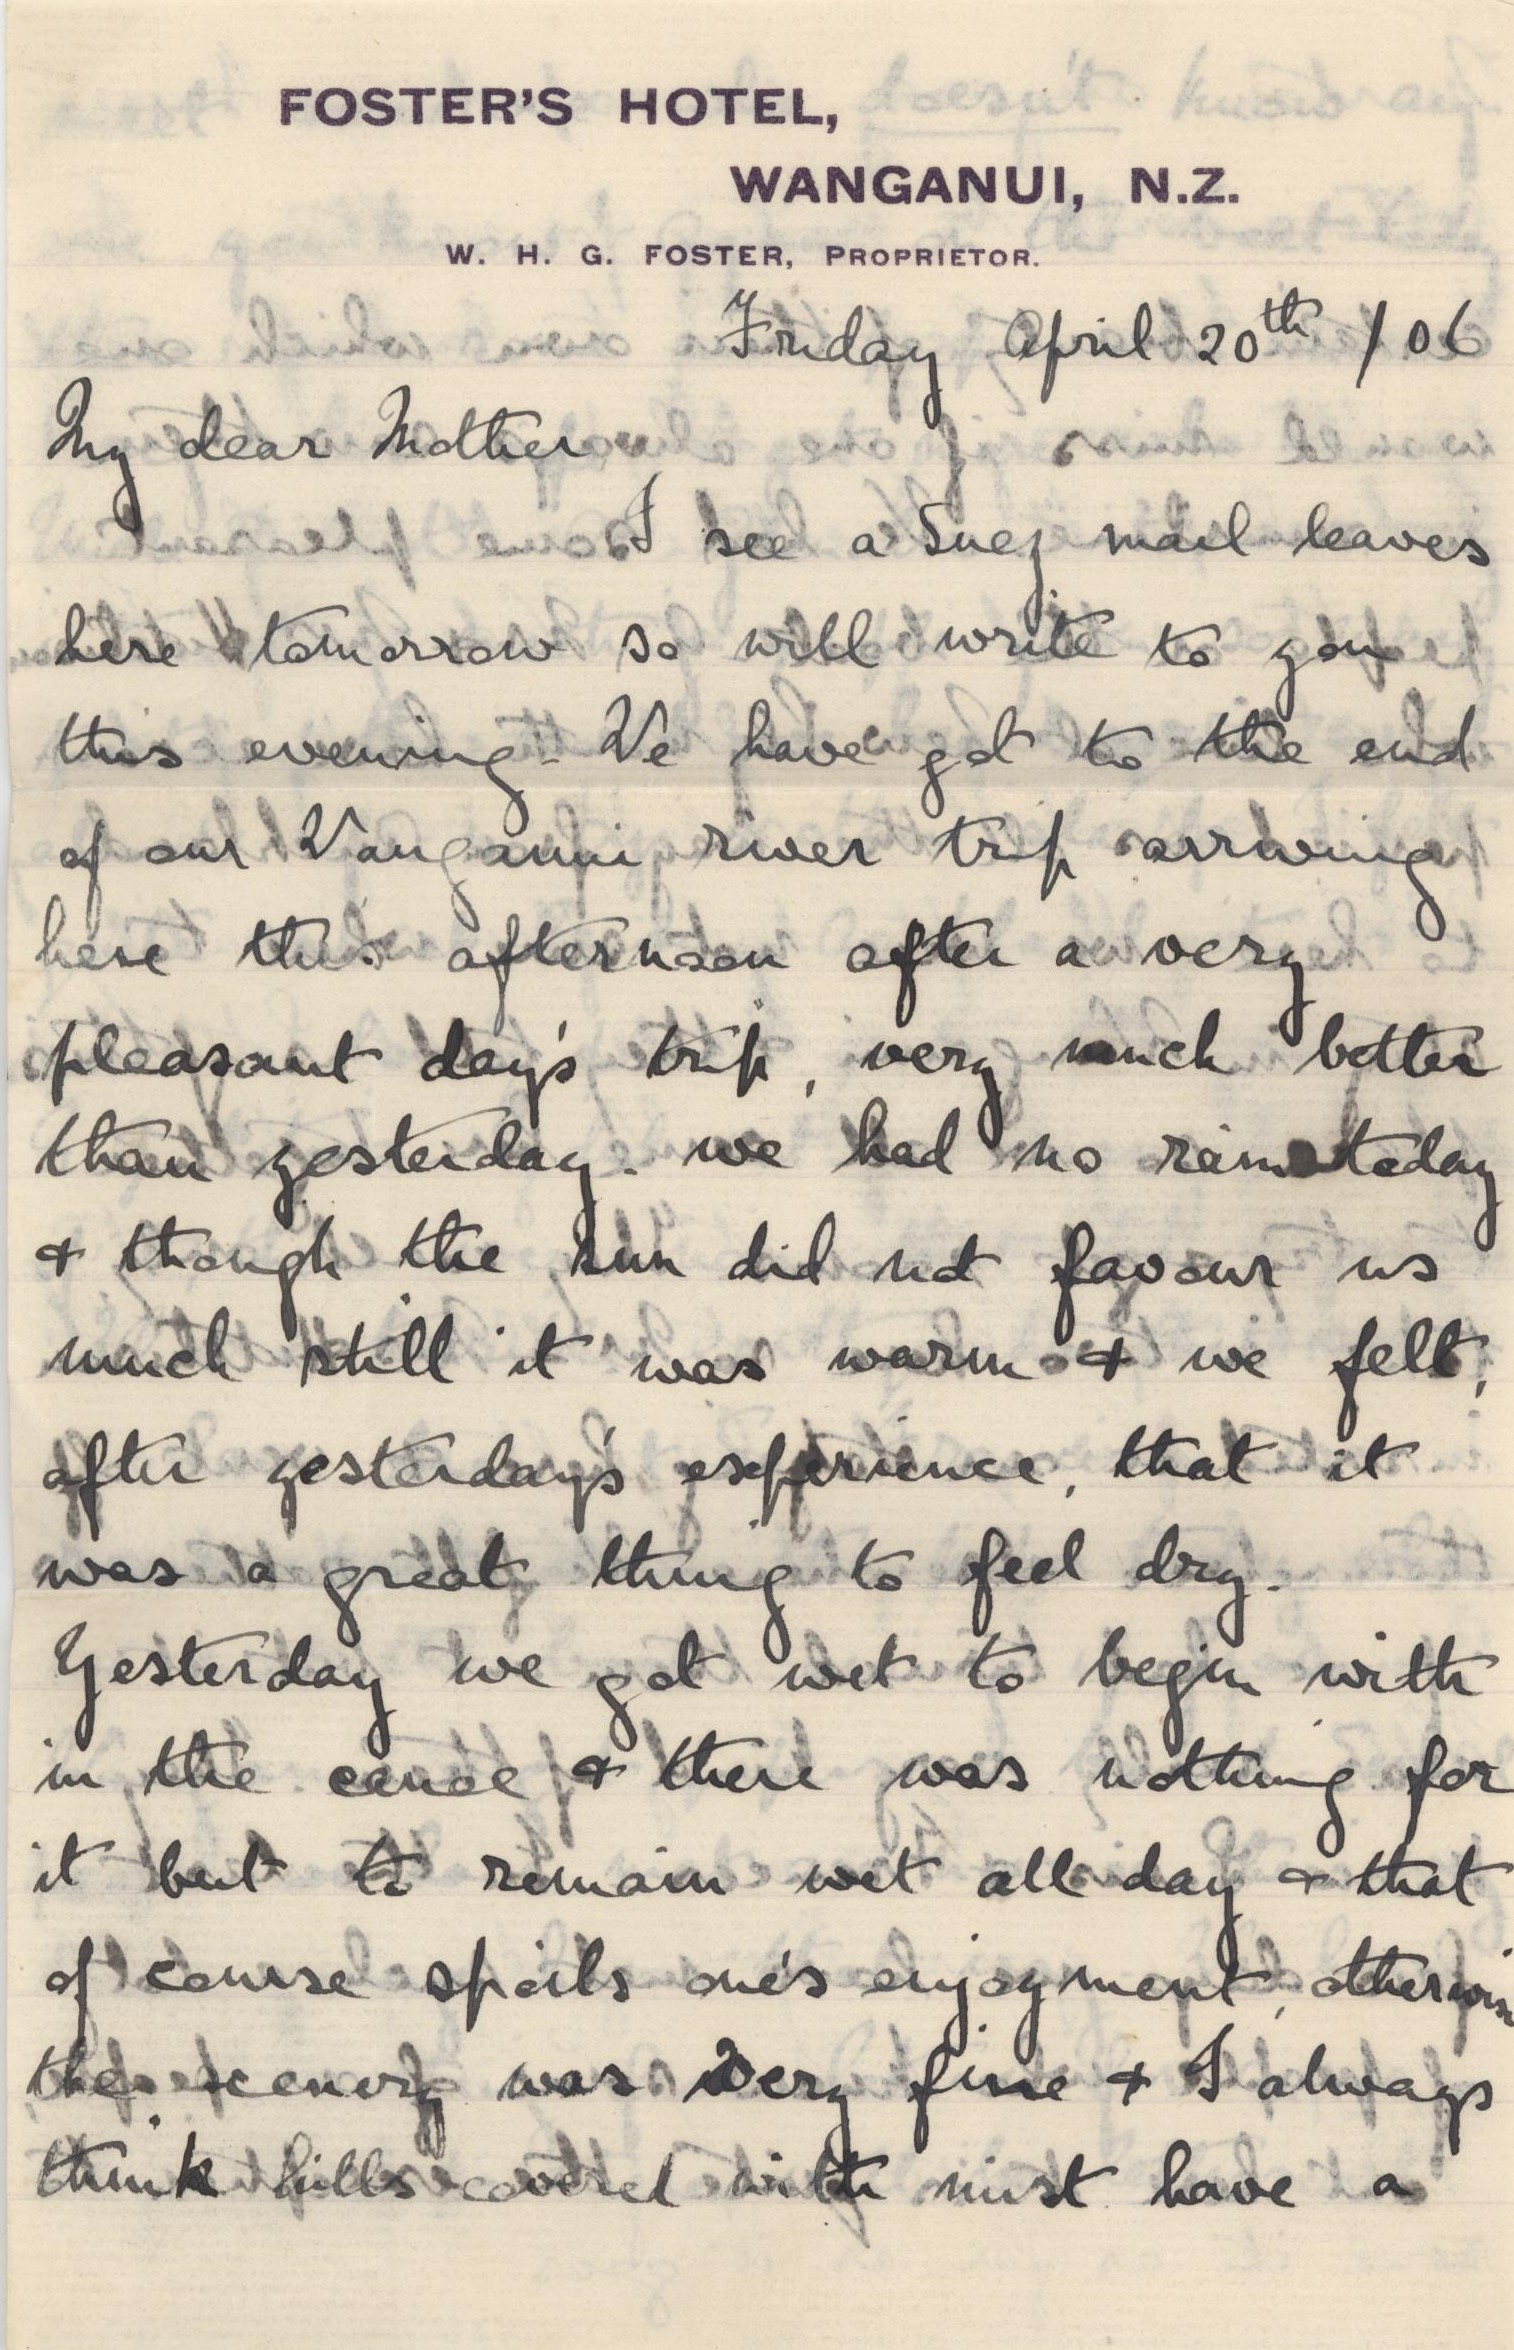 FOSTER'S HOTEL,
WANGANUI, N.Z.
W. H. G. FOSTER, PROPRIETOR.
Friday April 20th /06
My dear Mother
I see a Suez mail leaves
here tomorrow so will write to you
this evening. We have got to the end
of our Wanganui river trip arriving
here this afternoon after a very
pleasant day's trip, very much better
than yesterday. we had no rain today
& though the sun did not favour us
much still it was warm & we felt,
after yesterday's experience, that it
was a great thing to feel dry.
Yesterday we got wet to begin with
in the canoe & there was nothing for
it but to remain wet all day & that
of course spoils one's enjoyment, otherwise
the scenery was very fine & I always
think hills covered with mist have a